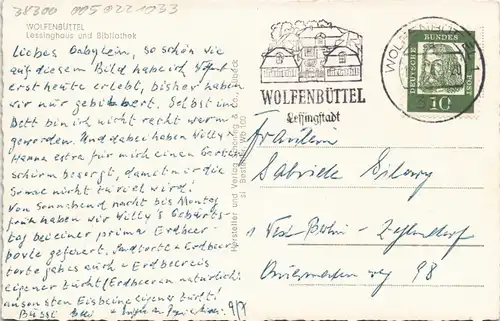 38300 005 0221033
WOLFENBÜTTEL
Lessinghaus und Bibliothek
Liebes Babylein, so schön wie
auf diesem Bild habe ich W'büttel
erst heute erlebt, bisher haben
wir nur gebibbert. Selbst im
Bett bin ich nicht recht warm
geworden. Und dabei haben Willy +
Hanna extra für mich einen Garten
schirm besorgt, damit mir die
Sonne nicht zu viel wird!
Von Sonnabend nacht bis Montag
früh haben wir Willy's Geburts-
tag bei einer prima Erdbeer-
bowle gefeiert. Sandtorte + Erdbeer
torte gab es auch + Erdbeereis
eigener Zucht (Erdbeeren natürlich!
ansonsten Eisbeine eigener Zucht!)
Bussi
9/7
Hersteller und Verlag Schöning & Co., Lübeck
Bestell-Nr. Wb 100
WOLFENBÜTTEL
Lessingstadt
WOLFENBÜTTEL 1
DEUTSCHE BUNDESPOST
10
Fräulein
Gabriele
1 West Berlin - Zehlendorf
weg 98